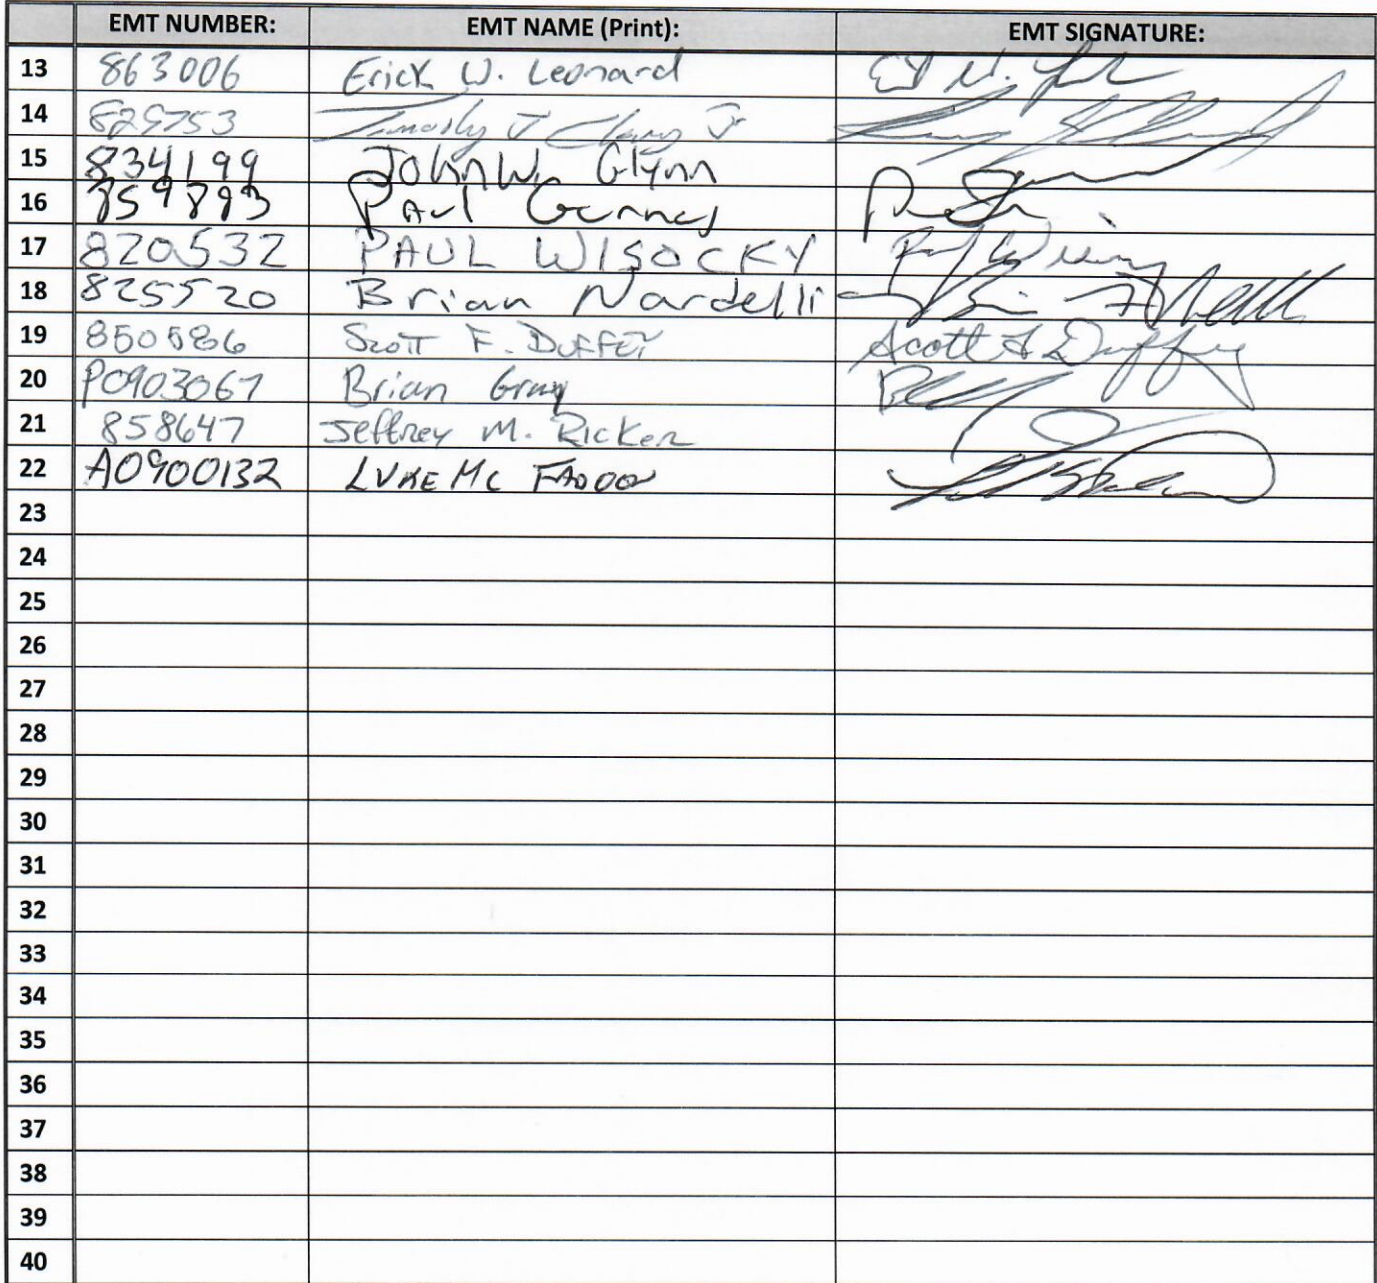 EMT NUMBER: EMT NAME (Print): EMT SIGNATURE:
13 863006 Erick W. Leonard
14 829753 Timothy J Jr
15 834199 John W. Glynn
16 Paul
17 820532 PAUL WISOCKY
18 825520 Brian Nardelli
19 850586 Scott F. Duffey Scott F Duffey
20 P0903067 Brian Gray
21 858647 Jeffrey M. Ricker
22 A0900132 LUKE Mc
23
24
25
26
27
28
29
30
31
32
33
34
35
36
37
38
39
40